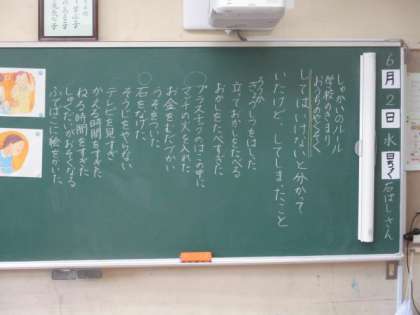 6月2日水
石ばしさん
しゃかいのルール
学校のきまり
おうちのやくそく
してはいけないと分かって
いたけど、してしまったこと
ろうか
きょうしつをはしった
立ておかしをたべる
おかしをたべすぎた
プラスチックのはこの中に
マッチの火を入れた
お金をむだづかい
うそをついた
石をなげた
そうじをやらない
テレビを見すぎ
かえる時間をすぎた
ねる時間をすぎた
しゅくだいがおそくなる
ふでばこに絵をかいた